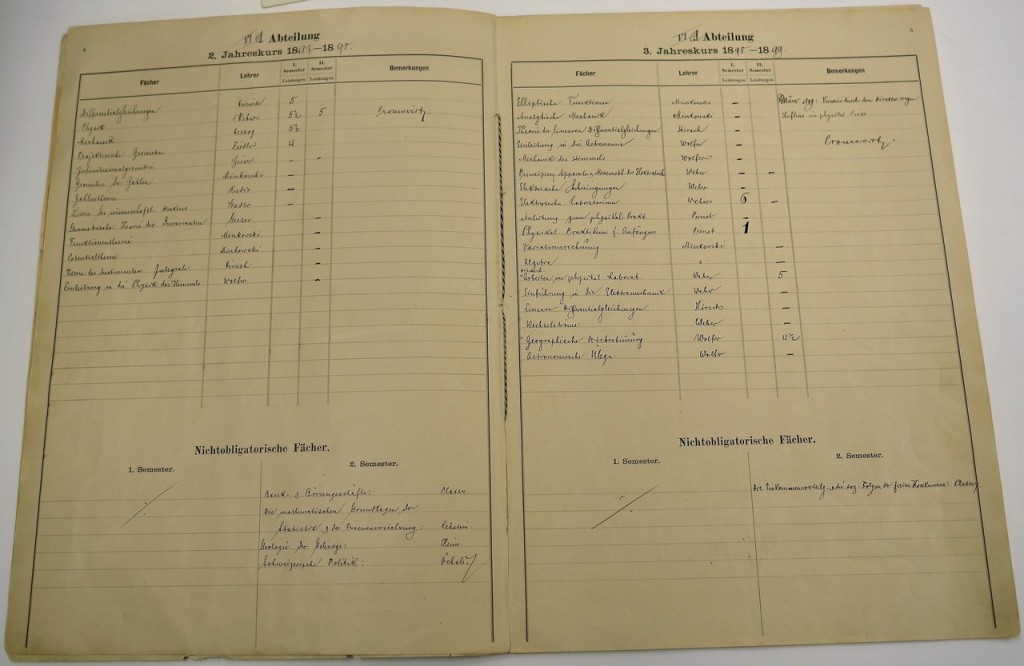 4
VI A Abteilung
2. Jahreskurs 1897–1898.
Fächer Lehrer I. Semester II. Semester Bemerkungen
Leistungen Leistungen
Differentialgleichungen Hurwitz 5
Physik Weber 5½ 5 Promovirt
Mechanik Herzog 5½
Projektivische Geometrie Fiedler 4
Infinitesimalgeometrie Geiser – –
Geometrie der Zahlen Minkowski –
Zahlentheorie –
Theorie des wissenschaftl. Denkens Stadler –
Geometrische Theorie der Invarianten Geiser –
Funktionentheorie Minkowski –
Potentialtheorie Minkowski –
Theorie der bestimmten Integrale Hirsch –
Einleitung in die Physik des Himmels Wolfer –
Nichtobligatorische Fächer.
1. Semester. 2. Semester.
Bank- & Börsengeschäfte: Platter.
Die mathematischen Grundlagen der
Statistik & der Personenversicherung: Rebstein.
Geologie der Gebirge: Heim.
Schweizerische Politik: Öchsli.
5
VI A Abteilung
3. Jahreskurs 1898–1899.
Fächer Lehrer I. Semester II. Semester Bemerkungen
Leistungen Leistungen
Elliptische Funktionen Minkowski – März 99: Verweis durch den Direktor wegen
Analytische Mechanik Minkowski – Unfleiss im physikal. Prakt.
Theorie der linearen Differentialgleichungen Hirsch –
Einleitung in die Astronomie Wolfer – Promovirt.
Mechanik des Himmels Wolfer –
Prinzipien, Apparate & Messmeth. der Elektrotech. Weber – –
Elektrische Schwingungen Weber –
Elektrotechn. Laboratorium Weber 6 –
Anleitung zum physikal. Prakt. Pernet –
Physikal. Praktikum f. Anfänger Pernet 1
Variationsrechnung Minkowski –
Algebra " –
Arbeiten im physikal. Laborat. Weber 5
Einführung in die Elektromechanik Weber –
Lineare Differentialgleichungen Hirsch –
Wechselströme Weber –
Geographische Ortsbestimmung Wolfer 4½
Astronomische Wolfer –
Nichtobligatorische Fächer.
1. Semester. 2. Semester.
Die Einkommensverteilg. & die soz. Folgen der freien Konkurrenz: Platter